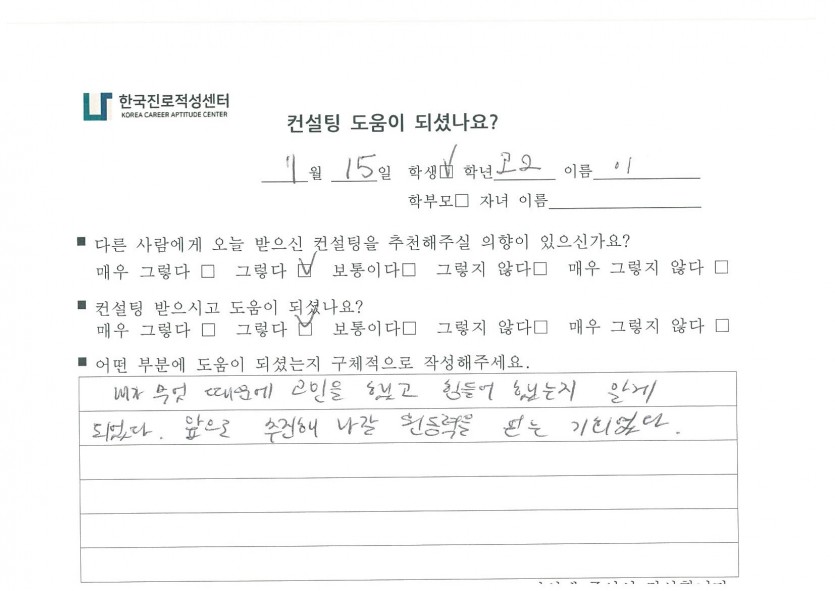 한국진로적성센터
KOREA CAREER APTITUDE CENTER
컨설팅 도움이 되셨나요?
7월 15일 학생☑ 학년 고2 이름 이
학부모□ 자녀 이름
■ 다른 사람에게 오늘 받으신 컨설팅을 추천해주실 의향이 있으신가요?
매우 그렇다 □ 그렇다 ☑ 보통이다□ 그렇지 않다□ 매우 그렇지 않다 □
■ 컨설팅 받으시고 도움이 되셨나요?
매우 그렇다 □ 그렇다 ☑ 보통이다□ 그렇지 않다□ 매우 그렇지 않다 □
■ 어떤 부분에 도움이 되셨는지 구체적으로 작성해주세요.
내가 무엇 때문에 고민을 했고 힘들어 했는지 알게
되었다. 앞으로 추진해 나갈 원동력을 얻는 기회였다.